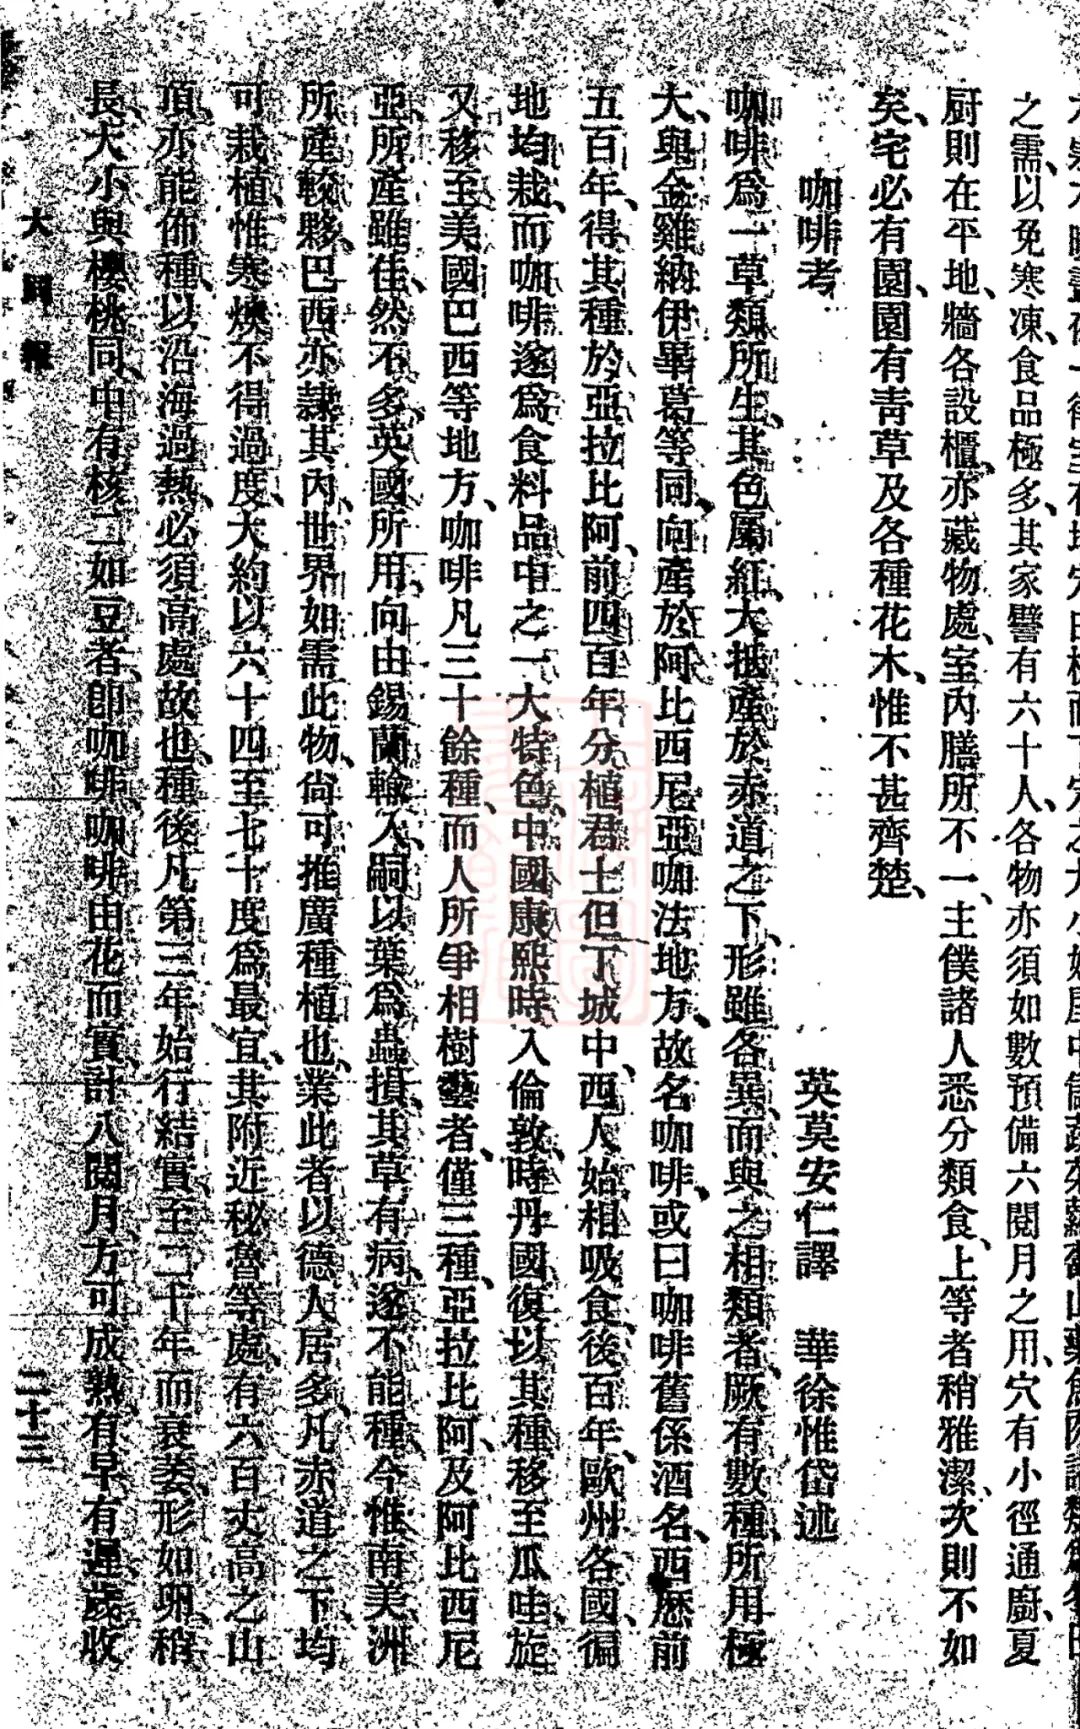 之需、以免寒凍、食品極多、其家譬有六十人、各物亦須如數預備六閱月之用、穴有小徑通廚、夏
厨則在平地、牆各設櫃、亦藏物處、室內膳所不一、主僕諸人悉分類食、上等者稍雅潔、次則不如
矣、宅必有園、園有靑草及各種花木、惟不甚齊楚、
咖啡考　英莫安仁譯　華徐惟岱述
咖啡爲一草類所生、其色屬紅、大抵產於赤道之下、形雖各異、而與之相類者、厥有數種、所用極
大、與金雞納伊畢葛等同、向產於阿比西尼亞咖法地方、故名咖啡、或曰咖啡舊係酒名、西歷前
五百年、得其種於亞拉比阿、前四百年分植君士但丁城中、西人始相吸食、後百年、歐州各國、徧
地均栽、而咖啡遂爲食料品中之一大特色、中國康熙時、入倫敦、時丹國復以其種移至瓜哇、旋
又移至美國巴西等地方、咖啡凡三十餘種、而人所爭相樹藝者、僅三種、亞拉比阿、及阿比西尼
亞、所產雖佳、然不多、英國所用、向由錫蘭輸入、嗣以葉爲蟲損、其草有病、遂不能種、今惟南美洲
所產較夥、巴西亦隷其內、世界如需此物、尙可推廣種植也、業此者以德人居多、凡赤道之下、均
可栽植、惟寒燠不得過度、大約以六十四至七十度爲最宜、其附近秘魯等處、有六百丈高之山
頂、亦能佈種、以沿海過熱、必須高處故也、種後凡第三年始行結實、至二十年而衰萎、形如卵、稍
長、大小與櫻桃同、中有核二如豆者、卽咖啡、咖啡由花而實、計八閱月、方可成熟、有早有遲、歲收
大同報　二十三